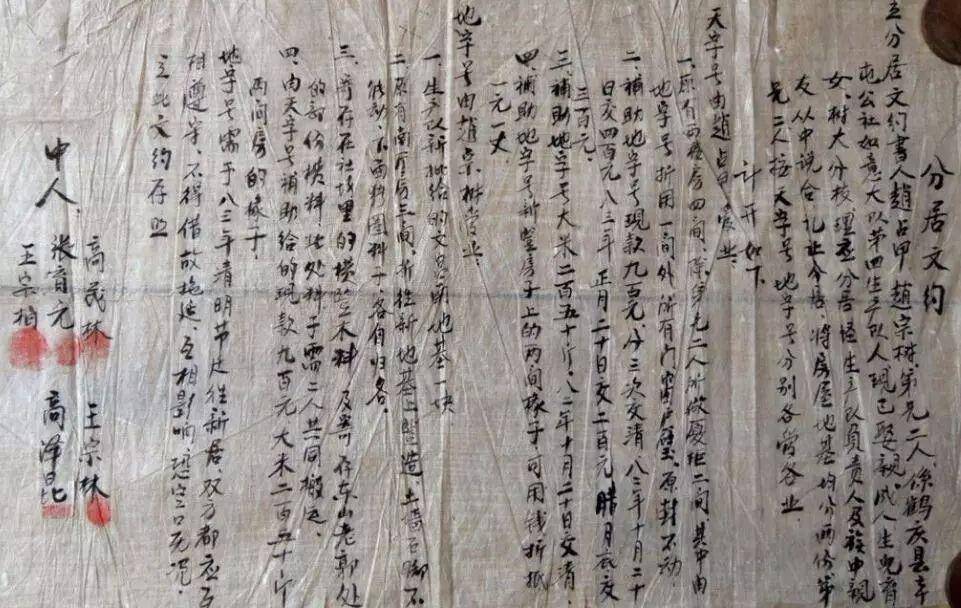 分居文约
立分居文约书人赵占甲、赵宗树弟兄二人,係鹤庆县辛
屯公社如意大队第四生产队人,现已娶亲,成人生儿育
女,树大分枝,理应分居,经生产队负责人及族中亲
友从中说合,礼让分居,将房屋地基均分两份,弟
兄二人按天字号、地字号分别各管各业。
计开如下
天字号由赵占甲管业。
一、原有西楼房四间、除弟兄二人所做厦柜二间,其中由
地字号折用一间外,所有门窗户壁,原封不动
二、补助地字号现款九百元,分三次交清,八二年十月二十
日交四百元,八三年正月二十日交二百元,腊月底交
三百元。
三、补助地字号大米二百五十斤,八二年十月二十日交清。
四、补助地字号新竖房子上的两间椽子,可用钱折抵
一元一丈
地字号由赵宗树管业。
一、生产队新批给的文昌朝地基一块
二、原有南厅房三间,拆往新地基上竖造,土墙石脚不
能动,东西料圈料子,各自归各。
三、寄存在社场里的横竖木料及寄存东山老郭处
的部份横料,此处料子需二人共同搬运。
四、由天字号补助给的现款九百元,大米二百五十斤
两间房的椽子。
地字号需于八三年清明节迁往新居,双方都应互
相遵守,不得借故拖延,互相影响,恐空口无凭,
立此文约存照
中人、
高茂林
张育元
王宗柏
王宗林
高泽昆